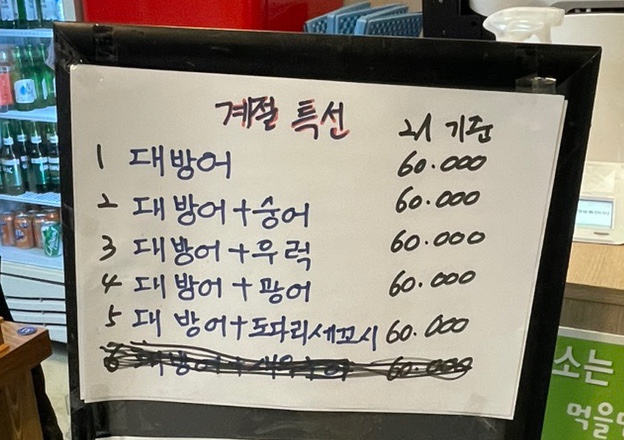 계절 특선 2人 기준
1 대방어 60.000
2 대방어+숭어 60.000
3 대방어+우럭 60.000
4 대방어+광어 60.000
5 대방어+도다리세꼬시 60.000
6 대방어+ 60.000
소는
먹을만